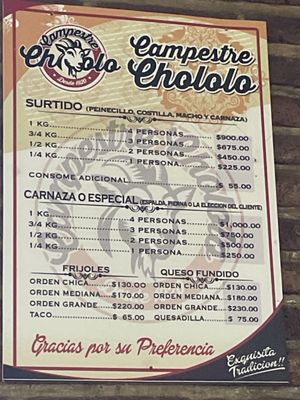 Campestre
Chololo
Desde 1920
Campestre
Chololo
SURTIDO (PEINECILLO, COSTILLA, MACHO Y CARNAZA)
1 KG. 4 PERSONAS $900.00
3/4 KG 3 PERSONAS $675.00
1/2 KG 2 PERSONAS $450.00
1/4 KG 1 PERSONA $225.00
CONSOME ADICIONAL $ 55.00
CARNAZA O ESPECIAL (ESPALDA, PIERNA O LA ELECCION DEL CLIENTE)
1 KG. 4 PERSONAS $1,000.00
3/4 KG 3 PERSONAS $750.00
1/2 KG 2 PERSONAS $500.00
1/4 KG 1 PERSONA $250.00
FRIJOLES
ORDEN CHICA $130.00
ORDEN MEDIANA $170.00
ORDEN GRANDE $220.00
TACO $ 65.00
QUESO FUNDIDO
ORDEN CHICA $130.00
ORDEN MEDIANA $180.00
ORDEN GRANDE $230.00
QUESADILLA $ 75.00
Gracias por su Preferencia
Exquisita
Tradicion!!